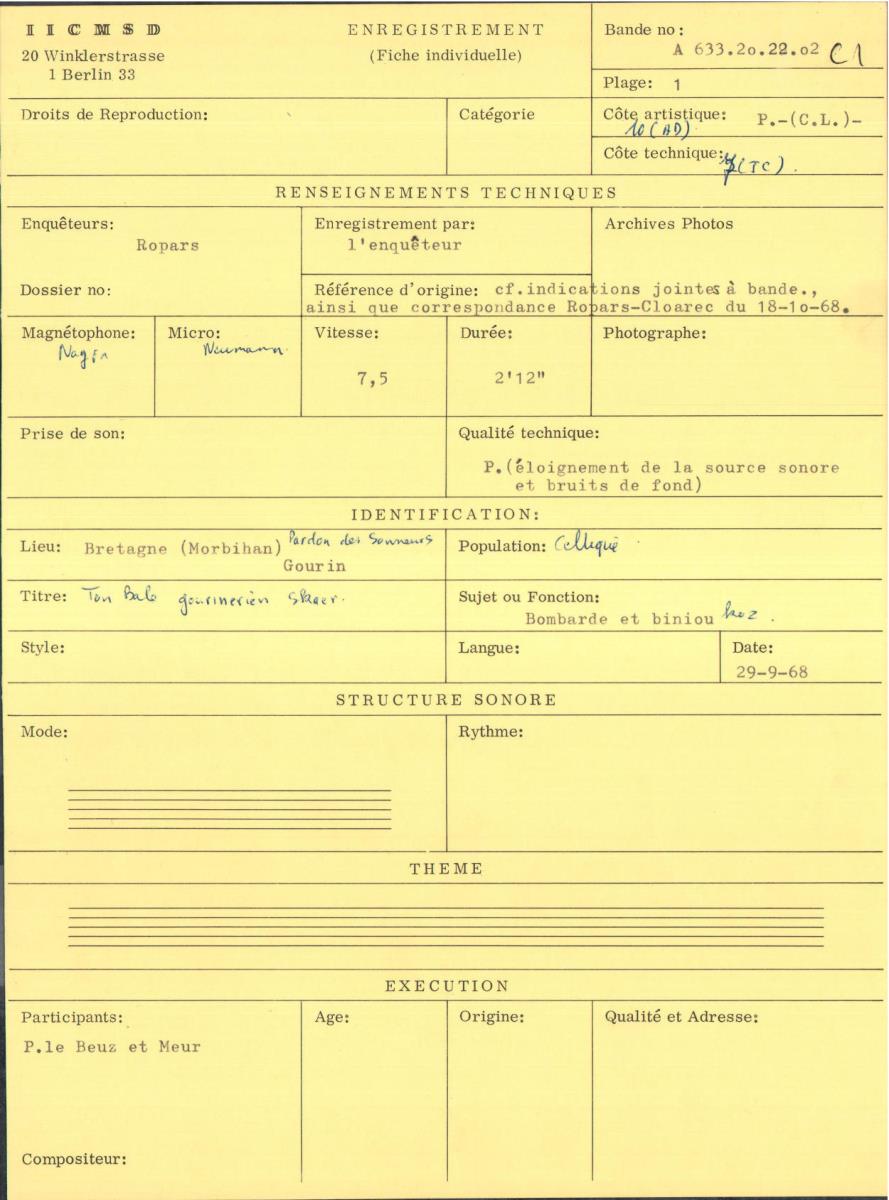 I I C M S D
20 Winklerstrasse
1 Berlin 33
ENREGISTREMENT
(Fiche individuelle)
Bande no :
A 633.2o.22.o2 C1
Plage: 1
Droits de Reproduction:
Catégorie
Côte artistique: P.-(C.L.)-
10 (AD)
Côte technique: (TC).
RENSEIGNEMENTS TECHNIQUES
Enquêteurs:
Ropars
Enregistrement par:
l'enquêteur
Archives Photos
Dossier no:
Référence d'origine: cf.indications jointes à bande.,
ainsi que correspondance Ropars-Cloarec du 18-1o-68.
Magnétophone:
Nagra
Micro:
Neumann
Vitesse:
7,5
Durée:
2'12"
Photographe:
Prise de son:
Qualité technique:
P.(éloignement de la source sonore
et bruits de fond)
IDENTIFICATION:
Lieu: Bretagne (Morbihan) Pardon des Sonneurs
Gourin
Population: Celtique
Titre: Ton Bale gourinerien Skaer.
Sujet ou Fonction:
Bombarde et biniou koz.
Style:
Langue:
Date:
29-9-68
STRUCTURE SONORE
Mode:
Rythme:
THEME
EXECUTION
Participants:
P.le Beuz et Meur
Age:
Origine:
Qualité et Adresse:
Compositeur: